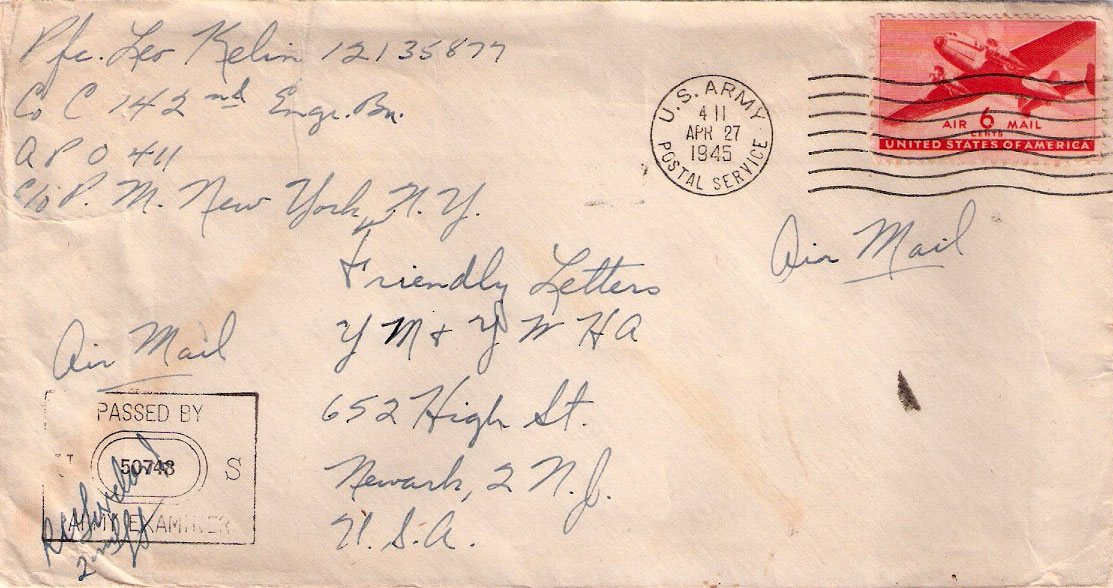 Pfc. Leo Kelin 12135877
Co C 142nd Engr. Bn.
A P O 411
c/o P. M. New York, N. Y.
U.S. ARMY
4 11
APR 27
1945
POSTAL SERVICE
AIR 6 MAIL
CENTS
UNITED STATES OF AMERICA
Air Mail
Friendly Letters
Y M & Y W H A
652 High St.
Newark, 2 N. J.
U. S. A.
Air Mail
PASSED BY
50748
S
ARMY EXAMINER
2nd Lt